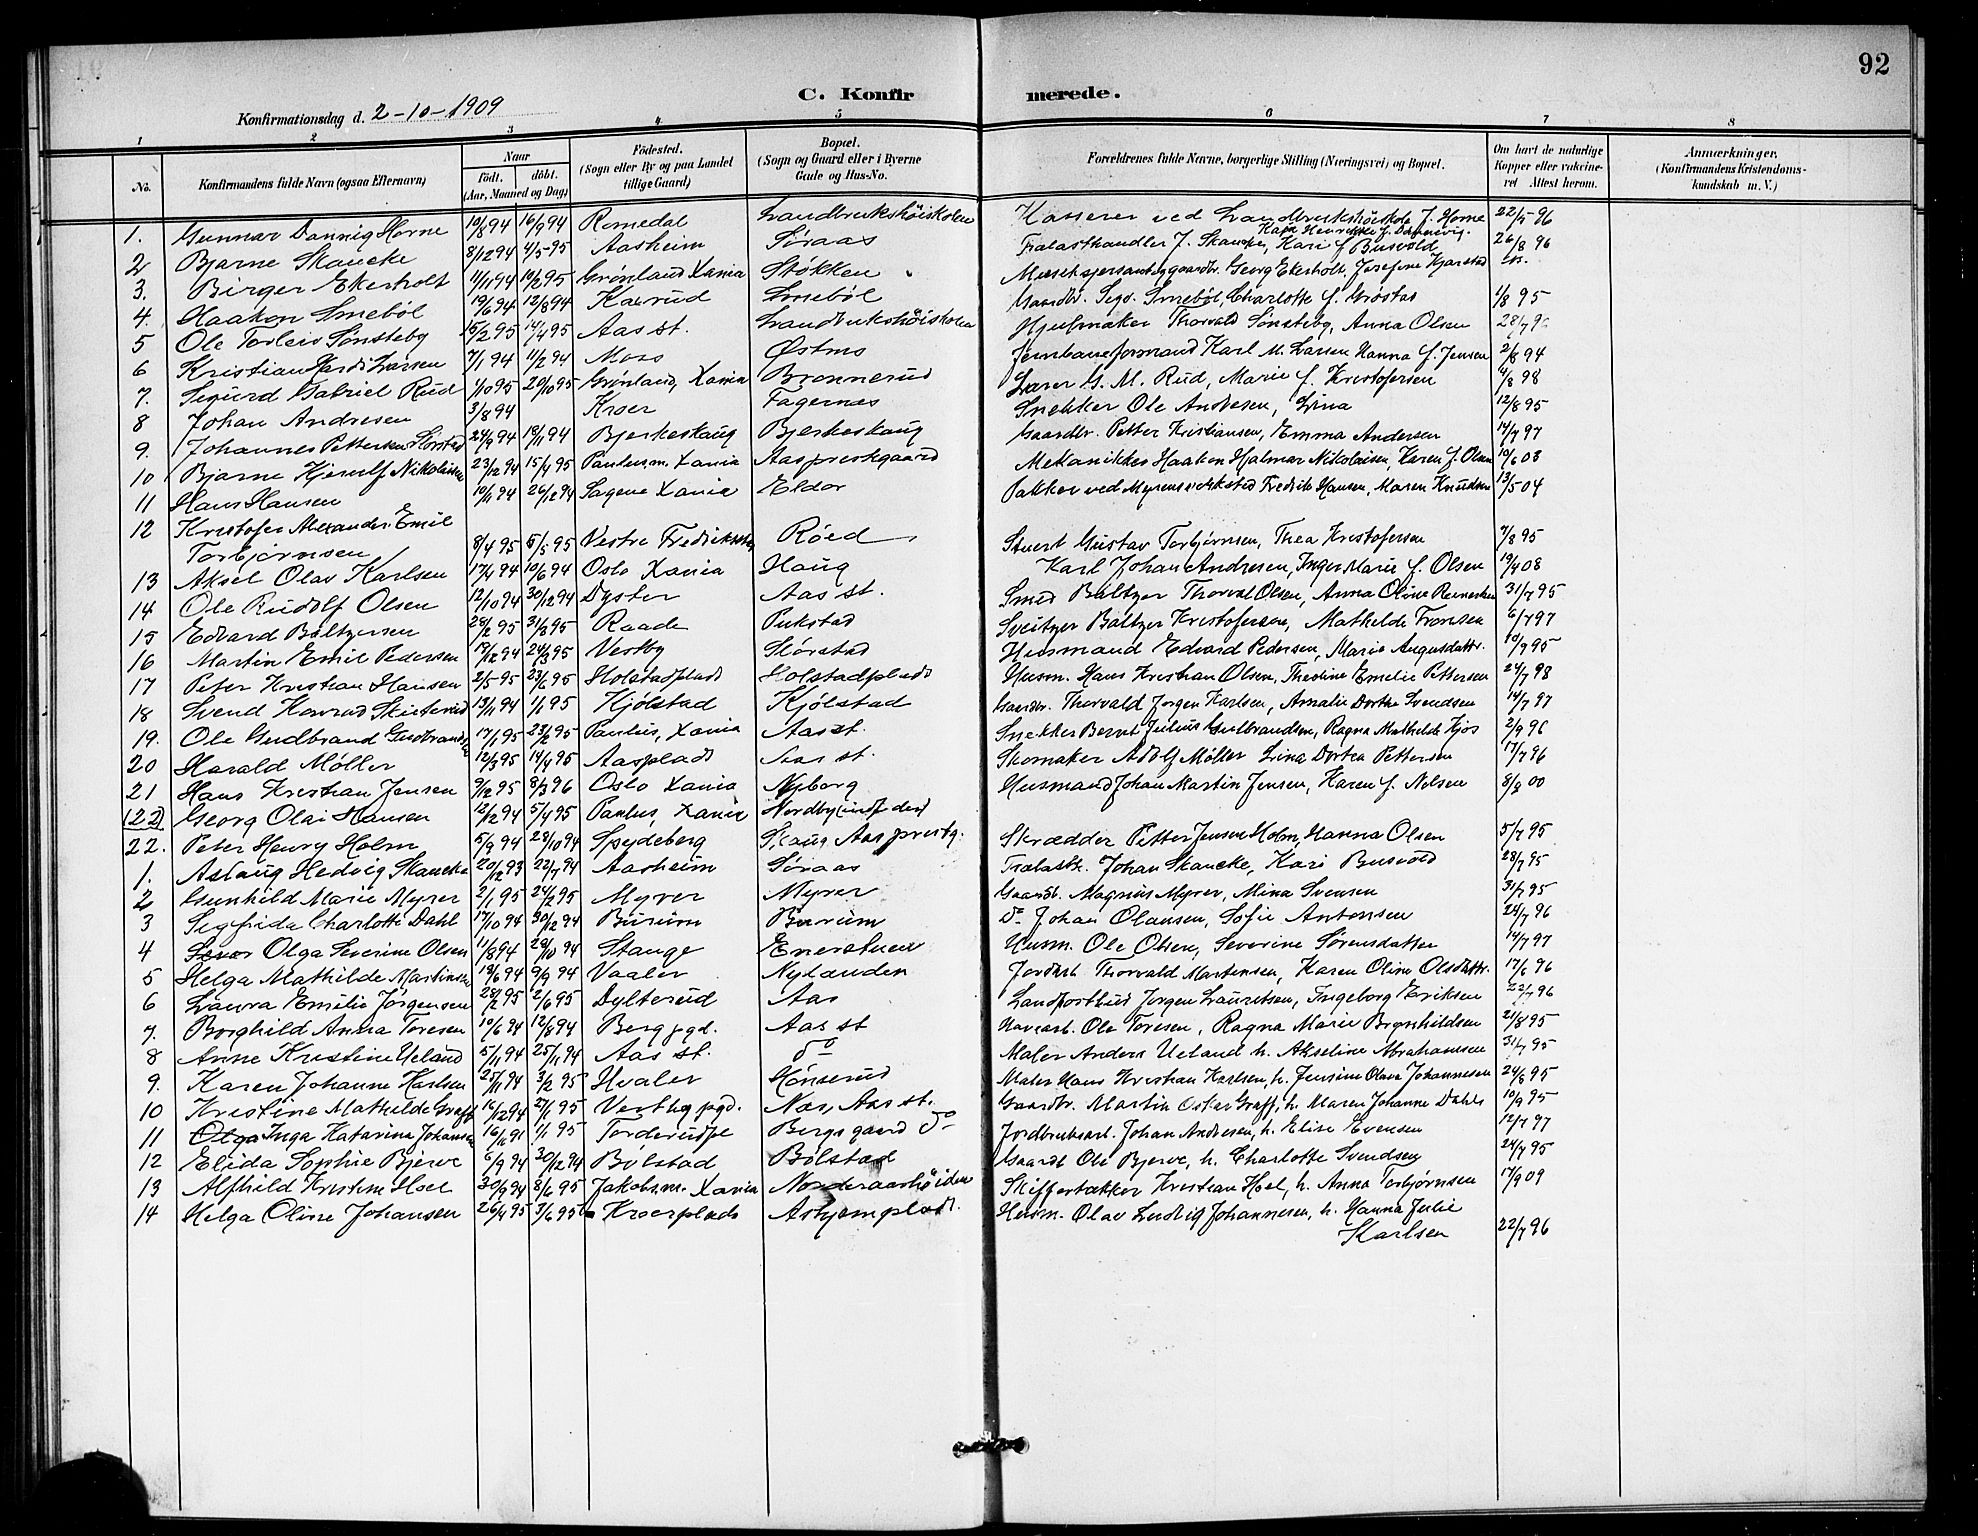 92
C. Konfirmerede.
Konfirmationsdag d. 2-10-1909
1 2 3 4 5 6 7 8
No. Konfirmandens fulde Navn (ogsaa Efternavn) Naar født. døbt. (Aar, Maaned og Dag) Fødested. (Sogn eller By og paa Landet tillige Gaard) Bopæl. (Sogn og Gaard eller i Byerne Gade og Hus-No. Forældrenes fulde Navne, borgerlige Stilling (Næringsvei) og Bopæl. Om havt de naturlige Kopper eller vakcineret Attest herom. Anmærkninger. (Konfirmandens Kristendomskundskab m. V.)
1. Gunnar Dannig Horne 10/8 94 16/9 94 Romedal Landbrukshöiskolen Kasserer ved Landbrukshöiskole J. Horne 22/5 96
2 Bjarne Skancke 8/12 94 4/5-95 Aasheim Søraas Trælasthandler J. Skancke, Kari f. Busvold 26/8 96
3. Birger Ekerholt 11/11 94 10/2 95 Grønland Xania Støkken Georg Ekerholt, Josefine Kjarstad
4. Haakon Smebøl 19/6 94 12/8 94 Kaxrud Smebøl Gaardbr. Sigv. Smebøl, Charlotte f. Grøstad 1/8 95
5 Ole Torleiv Sønsteby 15/2 95 14/4 95 Aas st. Landbrukshöiskolen Hjulmaker Thorvald Sønsteby, Anna Olsen 28/7 96
6 Kristian Hardi Larsen 7/1 94 11/2 94 Moss Østmo Jernbaneformand Karl M. Larsen Hanna f. Jensen 2/8 94
7. Sigurd Gabriel Rud 1/10 95 20/10 95 Grønland, Xania Brønnerud Lærer G. M. Rud, Marie f. Kristofersen 4/8 98
8 Johan Andresen 3/8 94 Kroer Fagernæs Snekker Ole Andresen, Lina 12/8 95
9. Johannes Pettersen Slørstad 24/9 94 18/11 94 Bjerkeskaug Bjerkeskaug Gaardbr. Petter Kristiansen, Emma Andersen 14/7 97
10 Bjarne Hjerulf Nikolaisen 23/12 94 15/4 95 Paulus m. Xania Aas prestgaard Mekaniker Haakon Hjalmar Nikolaisen, Karen f. Olsen 10/6 08
11 Hans Hansen 10/11 94 26/12 94 Sagene Xania Eldor Pakker ved Myrens verksted Fredrik Hansen, Maren Knudsen 13/5 04
12 Kristofer Alexander Emil
Torbjørnsen 8/4 95 5/5 95 Vestre Fredrikstad Røed Stuert Gustav Torbjørnsen, Thea Kristofersen 7/8 95
13 Aksel Olav Karlsen 17/4 94 10/6 94 Oslo Xania Haug Karl Johan Andresen, Inger Marie f. Olsen 19/4 08
14 Ole Rudolf Olsen 12/10 94 30/12 94 Dyster Aas st. Smed Baltzer Thorval Olsen, Anna Oline 31/7 95
15 Edvard Baltzersen 28/2 95 31/3 95 Raade Pukstad Sveitzer Baltzer Kristofersen, Mathilde Fransen 6/7 97
16 Martin Emil Pedersen 19/12 94 24/3 95 Vestby Slørstad Husmand Edvard Pedersen, Marie Augusdattr. 10/9 95
17 Peter Kristian Hansen 2/5-95 23/6 95 Holstadplads Holstadplads Husm. Hans Kristian Olsen, Theoline Emelie Pettersen 24/7 98
18 Svend Konrad Skuterud 13/11 94 1/1 95 Kjølstad Kjølstad Gaardbr. Thorvald Jørgen Karlsen, Amalie Dorthe Svendsen 14/7 97
19. Ole Gudbrand 17/1 95 23/2 95 Paulus, Xania Aas st. Snekker Bernt Julius Gulbrandsen, Ragna Mathilde Kjos 2/9 96
20 Harald Møller 12/3 95 14/4 95 Aasplads Aas st. Skomaker Adolf Møller Lina Dortea Pettersen 17/7 96
21 Hans Kristian Jensen 9/12 95 8/3 96 Oslo Xania Nyborg Husmand Johan Martin Jensen, Karen f. Nilsen 8/8 00
(22) Georg Olai Hansen 12/12 94 5/4 95 Paulus, Xania Nordby (indf. der)
22. Peter Henry Holm 5/9 94 28/10 94 Spydeberg Skaug Aas prestg. Skrædder Petter Jensen Holm, Hanna Olsen 5/7 95
1. Aslaug Hedvig Skancke 20/12 93 22/7 94 Aasheim Søraas Trælasth. Johan Skancke, Kari Busvold 28/7 95
2 Gunhild Marie Myrer 2/1 95 24/2 95 Myrer Myrer Gaardb. Magnus Myrer, Mina Svensen 31/7 95
3 Sigfrida Charlotte Dahl 17/10 94 30/12 94 Burum Burum do Johan Olausen, Sofie Antonsen 24/7 96
4 Olga Severine Olsen 11/8 94 28/10 94 Stange Enerstuen Husm. Ole Olsen, Severine Sørensdatter 14/7 97
5 Helga Mathilde Martinsen 19/6 94 9/9 94 Vaaler Nylænden Jordarb. Thorvald Martensen, Karen Oline Olsdattr. 17/6 96
6 Laura Emilie Jørgensen 28/2 95 2/6 95 Dylterud Aas Landpostbud Jørgen Lauritsen, Ingeborg Eriksen 22/7 96
7. Borghild Anna Toresen 10/6 94 12/8 94 Berg pgd. Aas st Havearb. Ole Toresen, Ragna Marie Brynhildsen 21/8 95
8 Anne Kristine Ueland 5/11 94 25/11 94 Aas st. do Maler Anders Ueland h. Akseline Abrahamsen 31/7 95
9. Karen Johanne Karlsen 25/11 94 3/2 95 Hvaler Hønserud Maler Hans Kristian Karlsen, h. Jensine Olava Johannesen 24/6 95
10 Kristine Mathilde Graff 16/12 94 27/1 95 Vestby pgd. Nør, Aas st. Gaardbr. Martin Oskar Graff, h. Maren Johanne Dahls 10/9 95
11 Olga Inga Katarina Johansen 16/12 91 1/1 95 Torderudpl Bergsgaard do Jordbruksarb. Johan Andresen, h. Elise Evensen 12/7 97
12 Elida Sophie Bjerve 6/9 94 30/12 94 Bølstad Bølstad Gaardb Ole Bjerve, h. Charlotte Svendsen 24/7 95
13 Alfhild Kristine Hoel 30/9 94 8/6 95 Jakobs m. Xania Norderaashöiden Skiffertækker Kristian Hoel, h. Anna Torbjørnsen 17/9 09
14 Helga Oline Johansen 26/4 95 3/6 95 Kroerplads Askjemplads. Husm. Olav Ludvig Johannesen, h. Hanna Julie
Karlsen 22/7 96